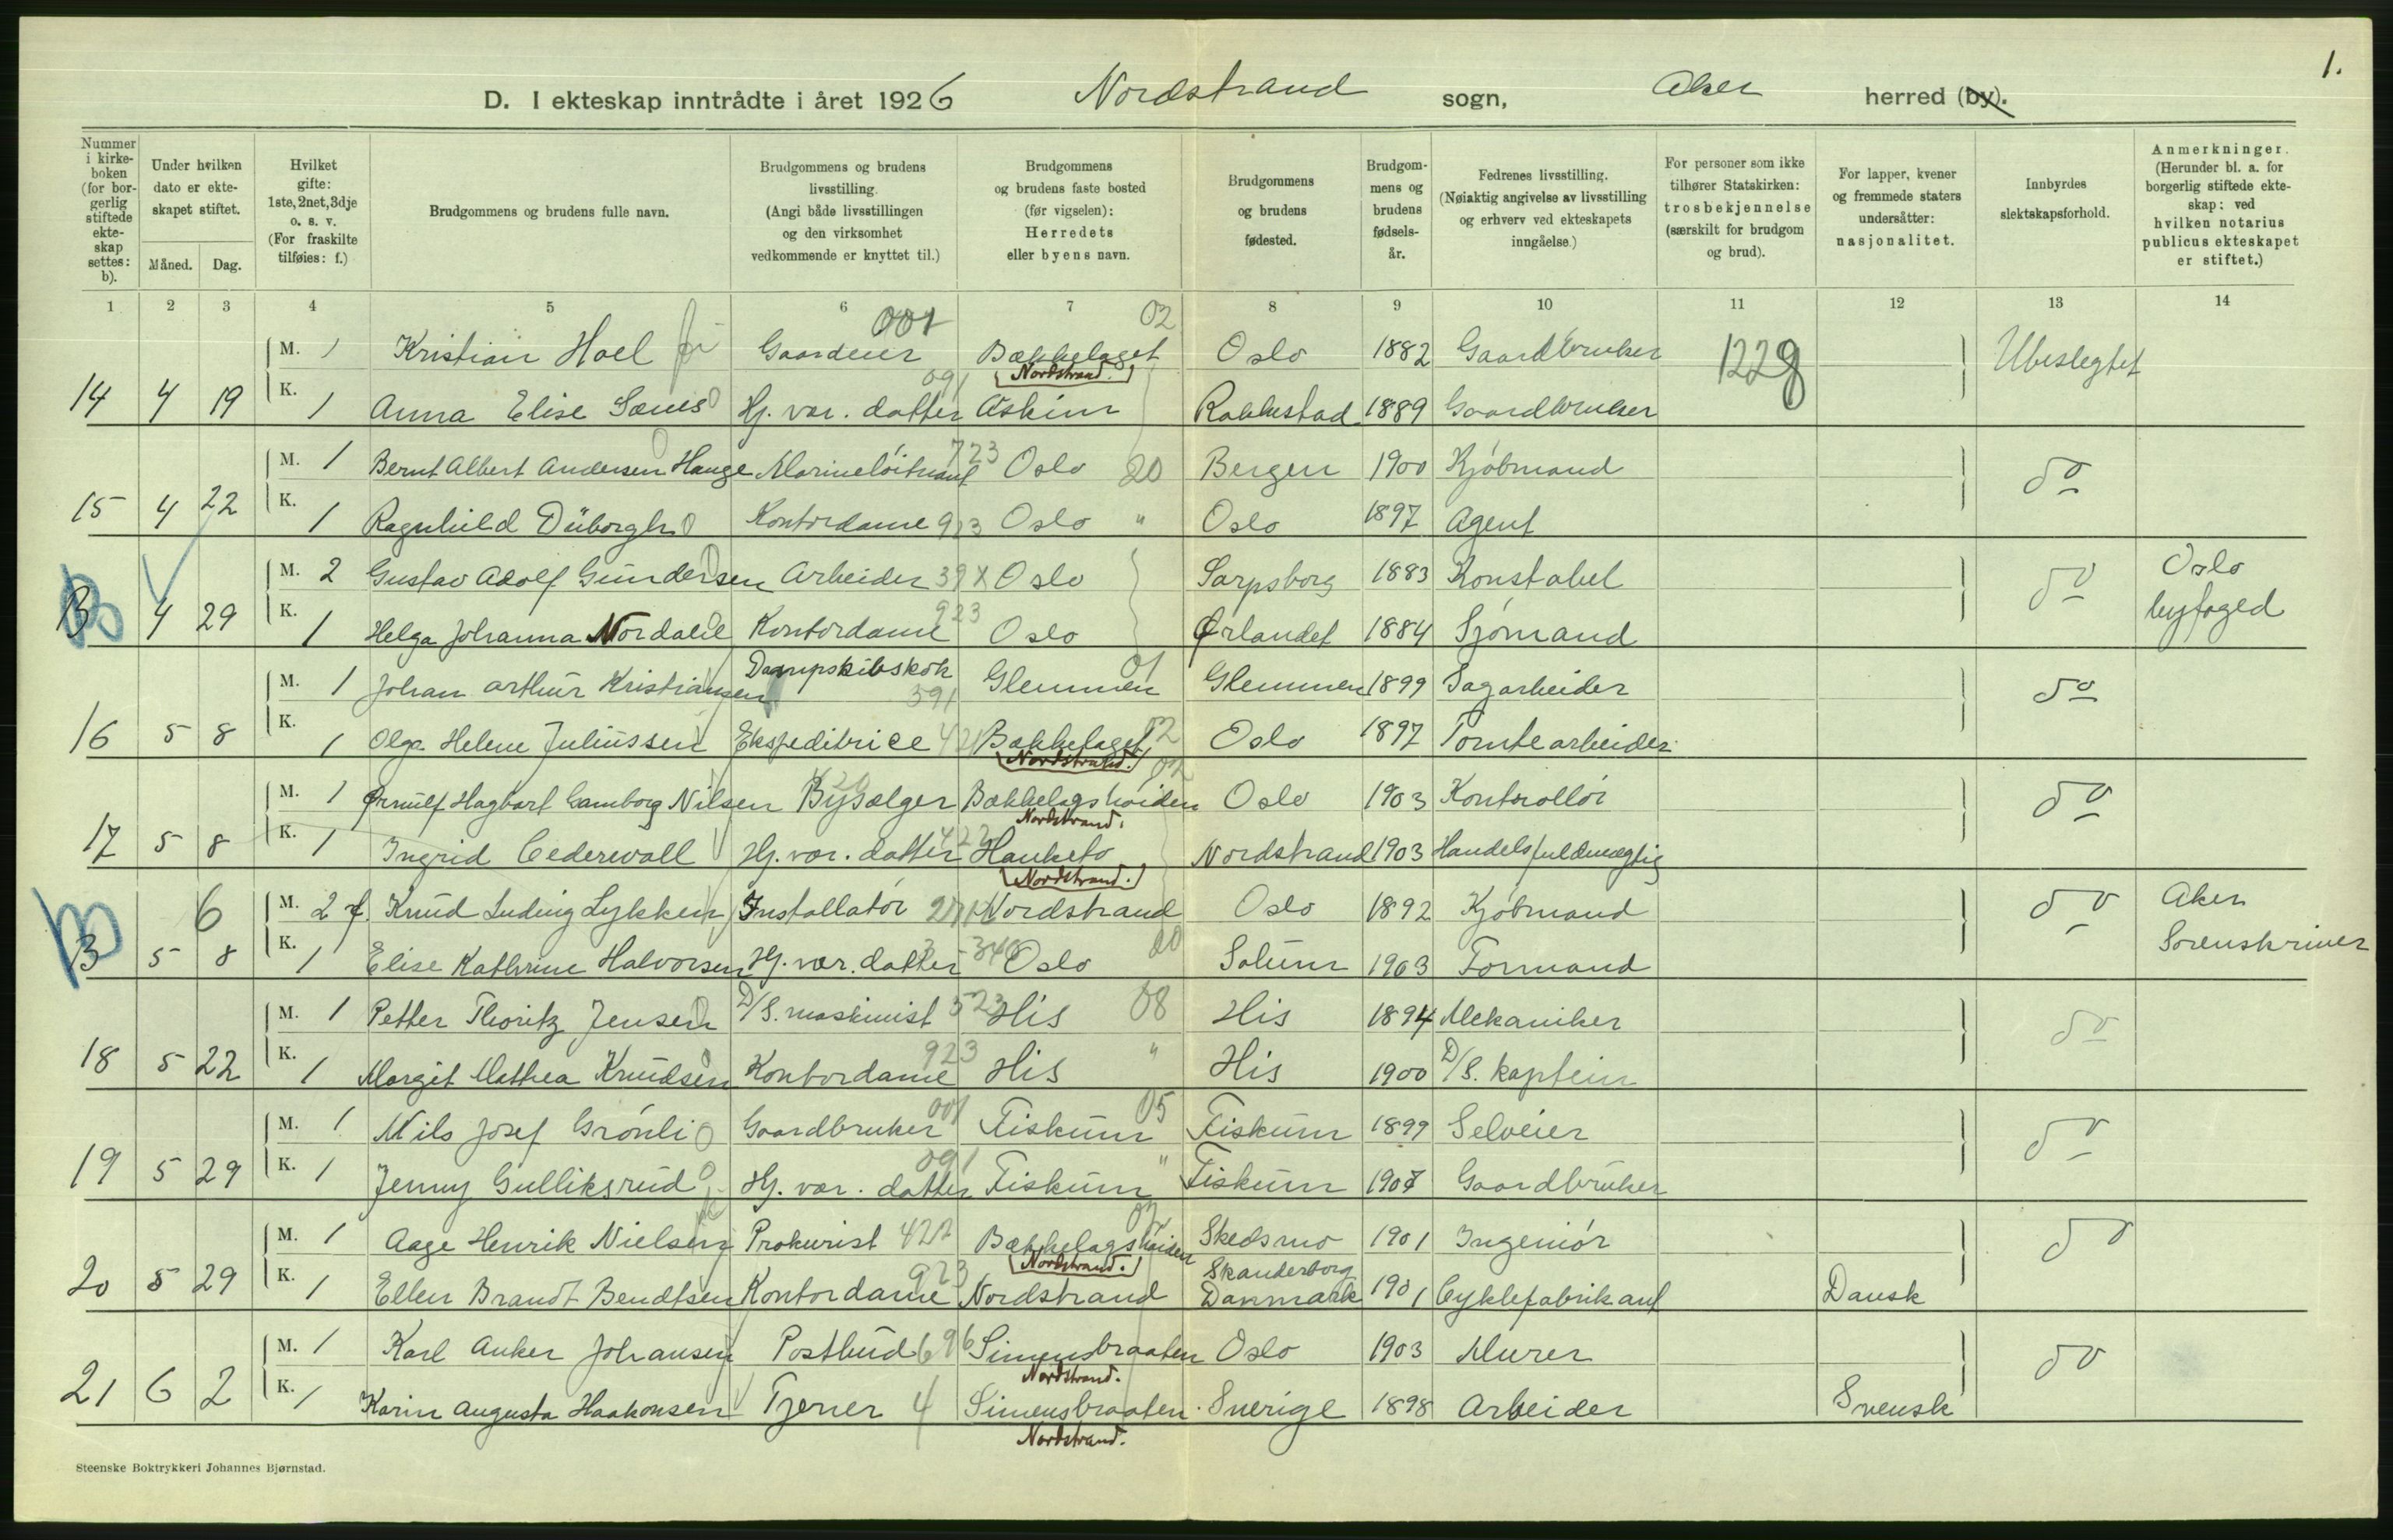 1.
D. I ekteskap inntrådte i året 1926 Nordstrand sogn, Aker herred (by).
Nummer i kirkeboken (for borgerlig stiftede ekteskap settes: b).
Under hvilken dato er ekteskapet stiftet.
Måned. Dag.
Hvilket gifte: 1ste, 2net, 3dje o. s. v. (For fraskilte tilføies: f.)
Brudgommens og brudens fulle navn.
Brudgommens og brudens livsstilling. (Angi både livsstillingen og den virksomhet vedkommende er knyttet til.)
Brudgommens og brudens faste bosted (før vigselen): Herredets eller byens navn.
Brudgommens og brudens fødested.
Brudgommens og brudens fødselsår.
Fedrenes livsstilling. (Nøiaktig angivelse av livsstilling og erhverv ved ekteskapets inngåelse.)
For personer som ikke tilhører Statskirken: trosbekjennelse (særskilt for brudgom og brud).
For lapper, kvener og fremmede staters undersåtter: nasjonalitet.
Innbyrdes slektskapsforhold.
Anmerkninger. (Herunder bl. a. for borgerlig stiftede ekteskap: ved hvilken notarius publicus ekteskapet er stiftet.)
1 2 3 4 5 6 7 8 9 10 11 12 13 14
001 02
M. 1 Kristian Hoel Gaardeier Bækkelaget Oslo 1882 Gaardbruker 1228 Ubeslegtet
091 (Nordstrand.)
14 4 19 K. 1 Anna Elise Sæves Hj. vær. datter Askim Rakkestad 1889 Gaardbruker
M. 1 Bernt Albert Andersen Hauge Marineløitnant 723 Oslo 20 Bergen 1900 Kjøbmand do
15 4 22 K. 1 Ragnhild Düborgh Kontordame 923 Oslo " Oslo 1897 Agent
M. 2 Gustav Adolf Gundersen Arbeider 39X Oslo Sarpsborg 1883 Konstabel do Oslo
B 4 29 K. 1 Helga Johanna Nordahl Kontordame 923 Oslo Ørlandet 1884 Sjømand byfoged
M. 1 Johan Arthur Kristiansen Dampskibskok 591 Glemmen 01 Glemmen 1899 Sagarbeider do
16 5 8 K. 1 Olga Helene Juliussen Ekspeditrice 421 Bækkelaget 02 Oslo 1897 Tomtearbeider
(Nordstrand.) 02
M. 1 Ørnulf Hagbart Gamborg Nilsen Bysælger Bækkelagshøiden Oslo 1903 Kontrollør do
Nordstrand.
17 5 8 K. 1 Ingrid Cederwall Hj. vær. datter 422 Hauketo Nordstrand 1903 Handelsfuldmægtig
(Nordstrand.)
6 M. 2 f. Knud Ludvig Lykken Installatør Nordstrand Oslo 1892 Kjøbmand do Aker
B 5 8 K. 1 Elise Kathrine Halvorsen Hj. vær. datter Oslo 20 Solum 1903 Formand Sorenskriver
M. 1 Petter Thoritz Jensen D/S. maskinist 523 His 08 His 1894 Mekaniker do
18 5 22 K. 1 Margit Mathea Knudsen Kontordame 923 His " His 1900 D/S. kaptein
M. 1 Nils Josef Grønli Gaardbruker 001 Fiskum 05 Fiskum 1899 Selveier do
19 5 29 K. 1 Jenny Gulliksrud Hj. vær. datter 091 Fiskum " Fiskum 1907 Gaardbruker
M. 1 Aage Henrik Nielsen Prokurist 422 Bækkelagshøiden 02 Skedsmo 1901 Ingeniør do
(Nordstrand.) Skanderborg
20 5 29 K. 1 Ellen Brandt Bendtsen Kontordame 923 Nordstrand Danmark 1901 Cyklefabrikant Dansk
M. 1 Karl Anker Johansen Postbud 696 Simensbraaten Oslo 1903 Murer do
Nordstrand.
21 6 2 K. 1 Karin Augusta Haakonsen Tjener 4 Simensbraaten Sverige 1898 Arbeider Svensk
Nordstrand.
Steenske Boktrykkeri Johannes Bjørnstad.